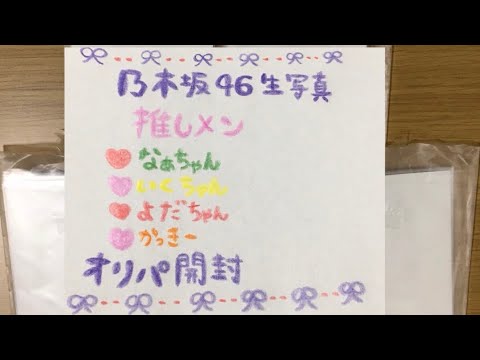 乃木坂46生写真
推しメン
なぁちゃん
いくちゃん
よだちゃん
かっきー
オリパ開封